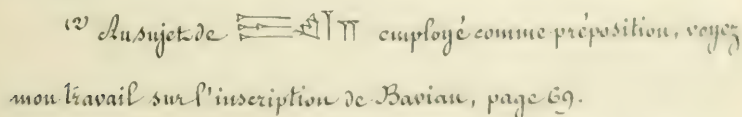 (2) Au sujet de employé comme préposition, voyez
mon travail sur l'inscription de Bavian, page 69.